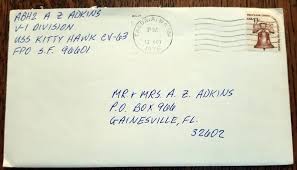 ABH2 A Z ADKINS
V-1 DIVISION
USS KITTY HAWK CV-63
FPO S.F. 96601
PM
MR & MRS. A. Z. ADKINS
P.O. BOX 944
GAINESVILLE, FL.
32602